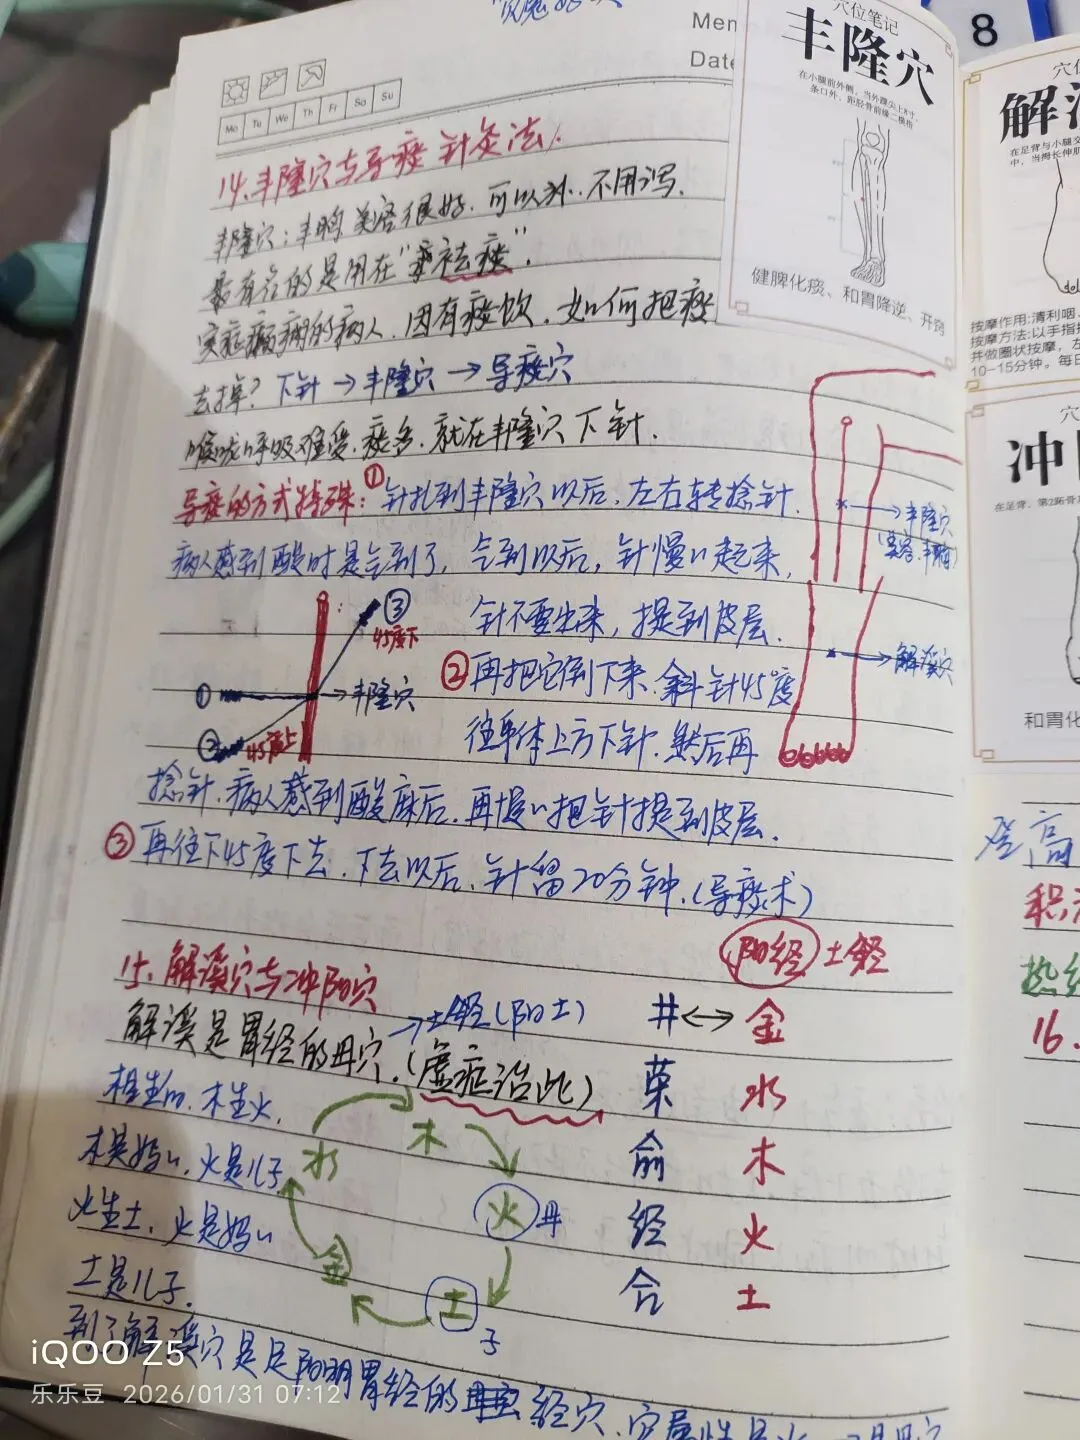 Mem
Date
8
Mo Tu We Th Fr Sa Su
穴位笔记
丰隆穴
在小腿前外侧，当外踝尖上8寸，
条口外，距胫骨前缘二横指
健脾化痰、和胃降逆、开窍
14.丰隆穴与导痰针灸法
丰隆穴：丰胸美容很好，可以补，不用泻.
最有名的是用在“祛痰”.
实症癫痫的病人，因有痰饮，如何把痰
去掉？下针→丰隆穴→导痰穴
喉咙呼吸难受，痰多，就在丰隆穴下针.
导痰的方式特殊：①针扎到丰隆穴以后，左右转捻针.
病人感到酸时是气到了，气到以后，针慢慢起来，
针不要出来，提到皮层.
②再把它倒下来，斜针45度
往身体上方下针，然后再
捻针，病人感到酸麻后，再慢慢把针提到皮层.
③再往下45度下去，下去以后，针留20分钟.(导痰术)
①→丰隆穴
②45度上
③45度下
→丰隆穴
(美容、丰胸)
→解溪穴
15.解溪穴与冲阳穴
解溪是胃经的母穴.(虚症治此)
→土经(阳土)
相生的，木生火，
木是妈妈，火是儿子
火生土，火是妈妈
土是儿子.
木
火 母
土 子
金
水
阳经 土经
井↔金
荥 水
俞 木
经 火
合 土
到了解溪穴是足阳明胃经的经穴，穴属性是火
解
在足背与小腿交
中，当拇长伸肌
按摩作用：清利咽
按摩方法：以手指
并做圈状按摩，左
10-15分钟。每日
冲
在足背，第2跖骨
和胃化
登高
积
热
16.
iQOO Z5
乐乐豆 2026/01/31 07:12